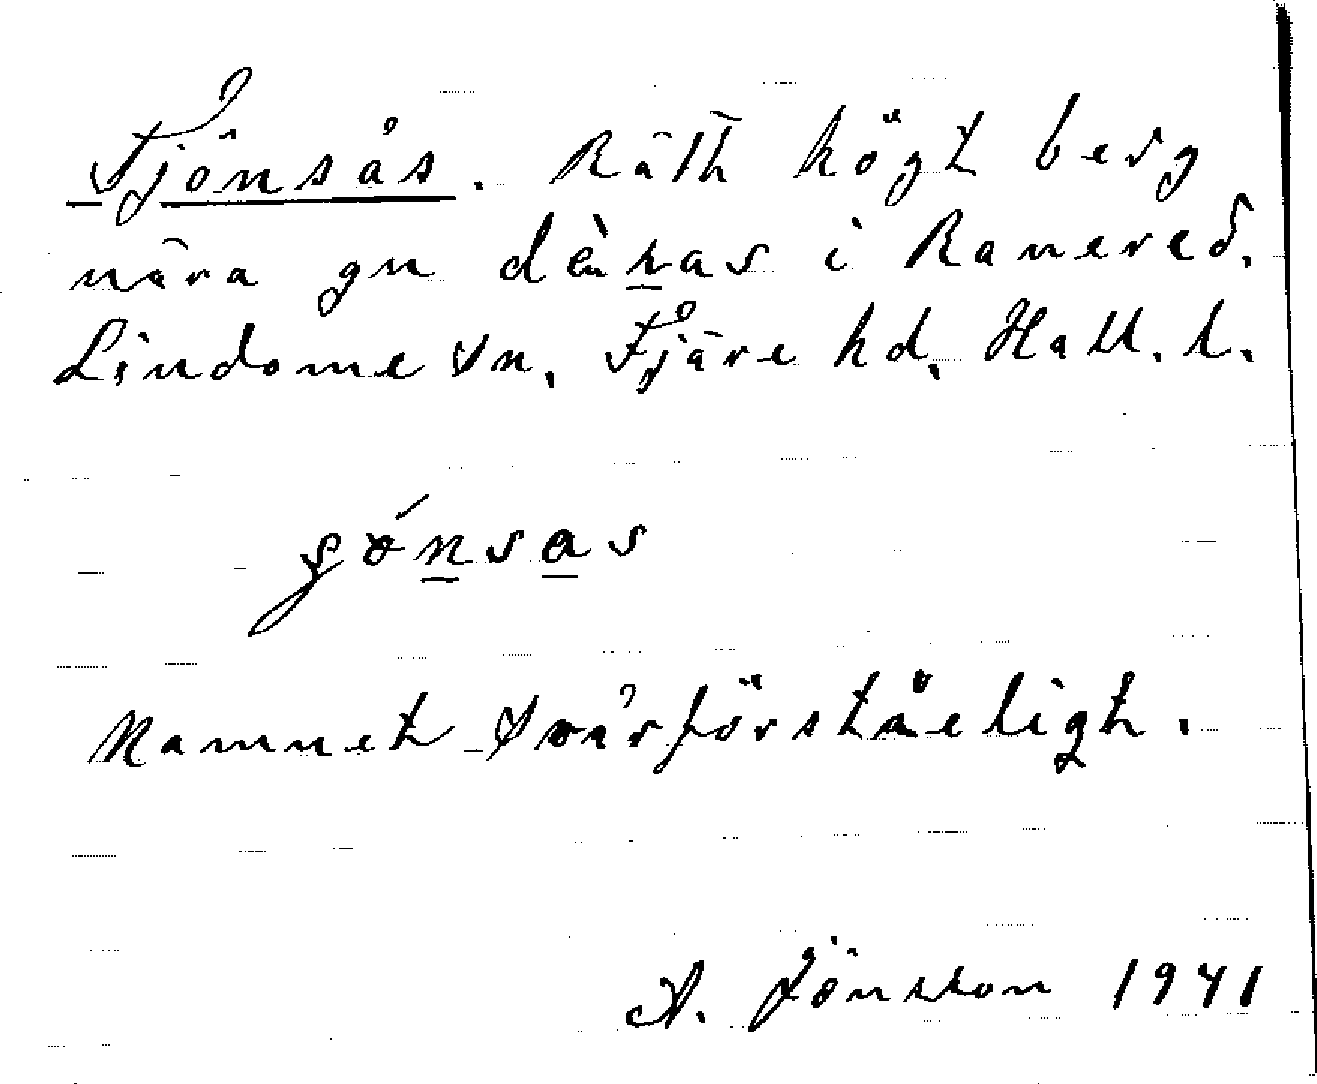 Fjönsås. Rätt högt berg
nära gn i Ranered.
Lindome sn. Fjäre hd. Hall. l.
Namnet svårförståeligt.
A. Jönsson 1941